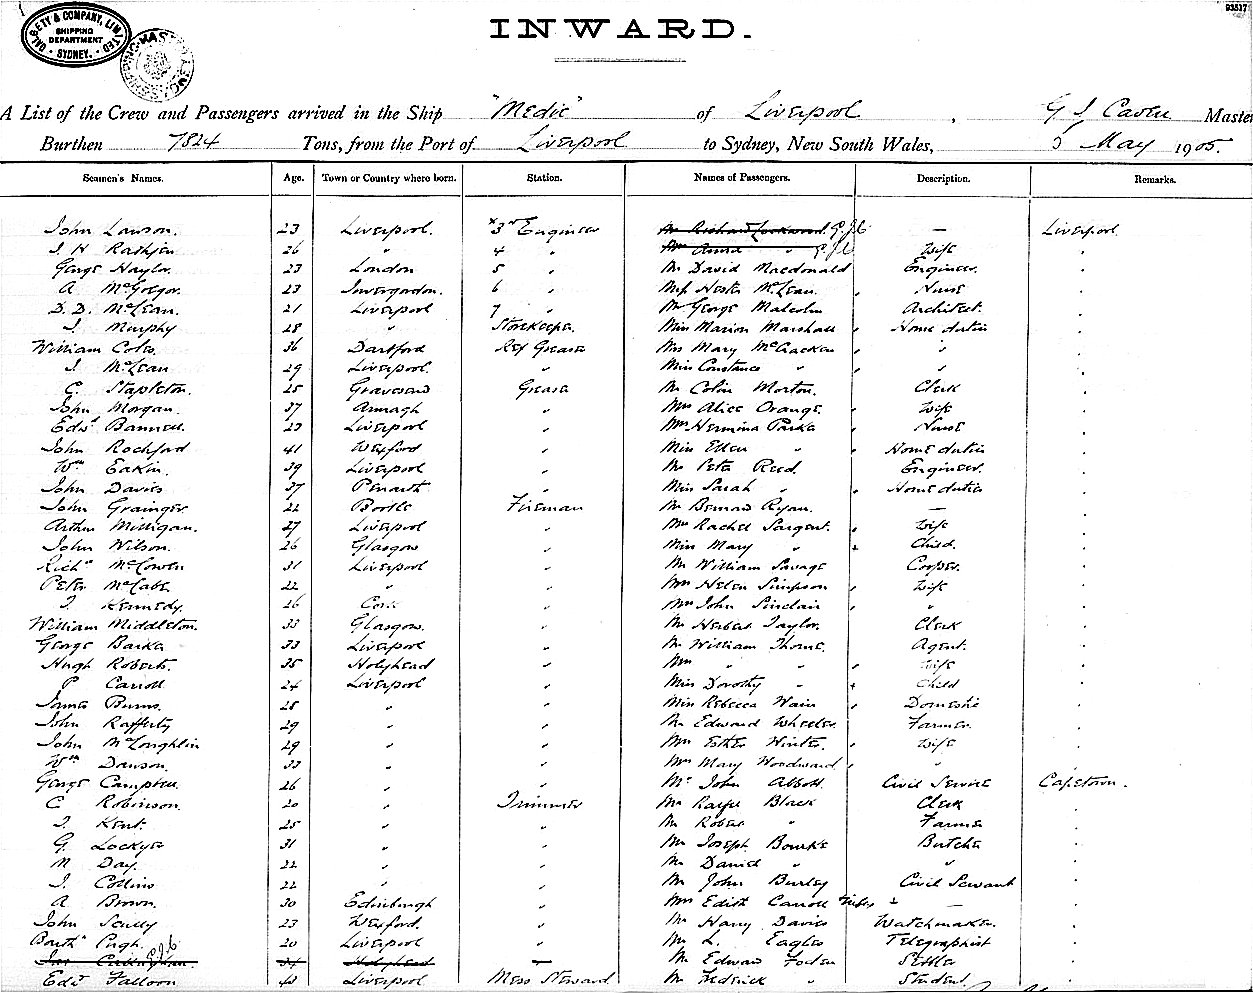 GILBERTY & COMPANY, LIMITED
SHIPPING DEPARTMENT
SYDNEY.
93517
INWARD.
A List of the Crew and Passengers arrived in the Ship "Medic" of Liverpool, Master
Burthen 7824 Tons, from the Port of Liverpool to Sydney, New South Wales, 5 May 1905.
Seamen's Names. Age. Town or Country where born. Station. Names of Passengers. Description. Remarks.
John Lawson. 23 Liverpool. 3rd Engineer Mr Richard Lockwood — Liverpool
J. H Rathjen 26 " 4 " Mrs Anna " Wife "
George Naylor. 23 London 5 " Mr David Macdonald Engineer.
A McGregor. 23 Invergordon. 6 " Hester McLean. Nurse
D. D. McLean. 21 Liverpool 7 " Mr George Malcolm Architect.
J. Murphy 28 " Storekeeper. Miss Marion Marshall Home duties
William Coles. 36 Dartford Ref Greaser Mrs Mary McCracken "
J. McLean 29 Liverpool. " Miss Constance " "
C. Stapleton. 25 Gravesend Greaser Mr Colin Morton. Clerk
John Morgan. 37 Armagh " Mrs Alice Orange. Wife
Edwd Bannell. 23 Liverpool " Hermina Parker Nurse
John Rochford 41 Wexford " Miss Ellen " Home duties
Wm Eakin. 39 Liverpool " Mr Peter Reed. Engineer.
John Davies 37 Penarth " Miss Sarah " Home duties
John Grainger. 22 Bootle Fireman Mr Bernard Ryan. —
Arthur Milligan. 27 Liverpool " Mrs Rachel Sargent. Wife
John Wilson. 26 Glasgow " Miss Mary " Child.
Richd McCowen 31 Liverpool " Mr William Savage Cooper.
Peter McCabe 22 " " Mrs Helen Simpson Wife
J. Kennedy. 26 Cork " Mrs John Sinclair "
William Middleton. 33 Glasgow. " Mr Herbert Taylor. Clerk
George Barker 33 Liverpool " Mr William Thorne. Agent.
Hugh Roberts. 35 Holyhead " Mrs " " Wife
P Carroll 24 Liverpool " Miss Dorothy " Child
James Burns. 28 " " Miss Rebecca Wain Domestic
John Rafferty 29 " " Mr Edward Wheeler. Farmer.
John McLoughlin 29 " " Mrs Esther Winter. Wife
Wm Dawson. 33 " " Mrs Mary Woodward "
George Campbell 26 " " Mr John Abbott. Civil Service Capetown.
C Robinson. 20 " Trimmer Mr Ralph Black Clerk
J. Kent. 25 " " Mr Robert " Farmer
G. Lockyer 31 " " Mr Joseph Bourke Butcher
M Day. 22 " " Mr Daniel " "
J. Collins 22 " " Mr John Burley Civil Servant
A Brown. 30 Edinburgh " Mrs Edith Carroll —
John Scully 23 Wexford. " Mr Harry Davies Watchmaker.
Barthw Pugh. 20 Liverpool " Mr L. Eagles Telegraphist
34 Holyhead — Mr Edward Foden Settler
Edwd Falloon 43 Liverpool Mess Steward. Mr Frederick " Student.